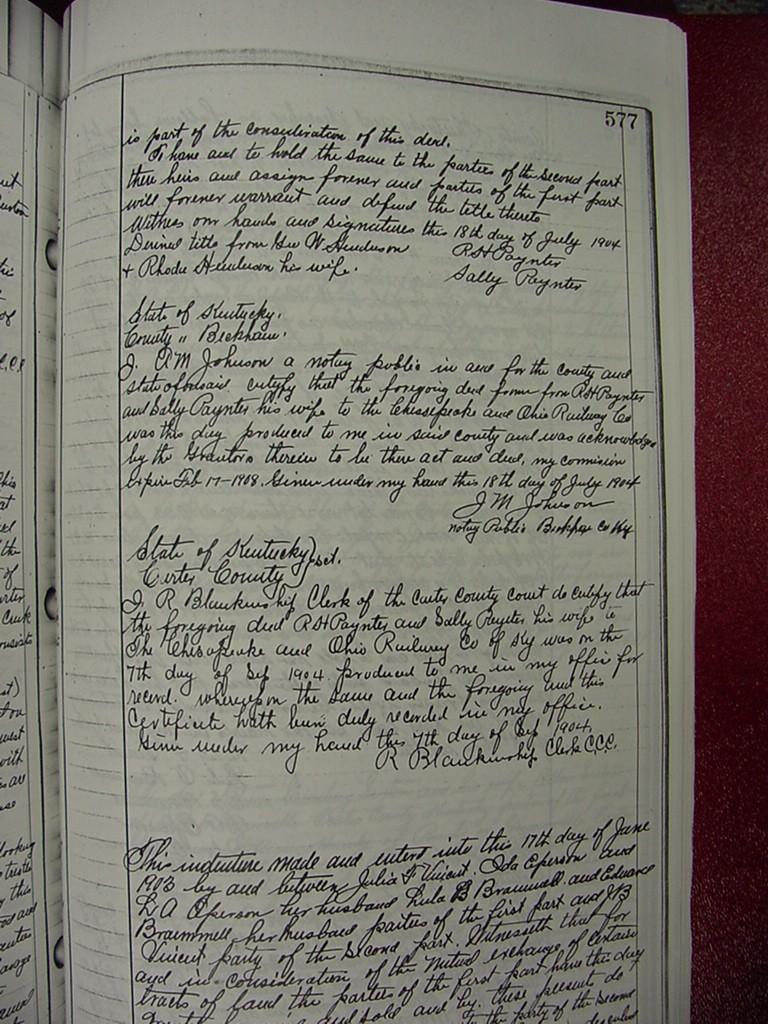 577
is part of the consideration of this deed.
To have and to hold the same to the parties of the second part
there heirs and assign forever and parties of the first part
will forever warrant and defend the title thereto
Witness our hands and signatures this 18th day of July 1904
Derived title from Geo W Henderson R H Paynter
+ Rhoda Henderson his wife. Sally Paynter
State of Kentucky.
County " Beckham.
I. A M Johnson a notary public in and for the county and
state aforesaid certify that the foregoing deed from R H Paynter
and Sally Paynter his wife to the Chessepeake and Ohio Railway Co
was this day produced to me in said county and was acknowledged
by the Grantors therein to be there act and deed, my commision
expire Feb 17-1908. Given under my hand this 18th day of July 1904
J M Johnson
notary Public Beckham Co Ky
State of Kentucky } sct.
Carter County
I. R Blankenship Clerk of the Carter county court do certify that
the foregoing deed R H Paynter and Sally Paynter his wife to
The Chesapeake and Ohio Railway Co of Ky was on the
7th day of Sep 1904. produced to me in my office for
record. whereupon the same and the foregoing and this
Certificate hath been duly recorded in my office.
Given under my hand this 7th day of Sep 1904.
R Blankenship Clerk C.C.C.
This indenture made and enterd into this 17th day of June
1903 by and between Julia F Vincent. Ida Eperson and
L A Eperson her husband Lula B Brammell and Edward
Brammell, her husband parties of the first part and J B
Vincent party of the second part. Witnesseth that for
and in consideration of the mutual exchange of certain
tracts of land the parties of the first part have this day
and sold and by these presents do
the party of the second